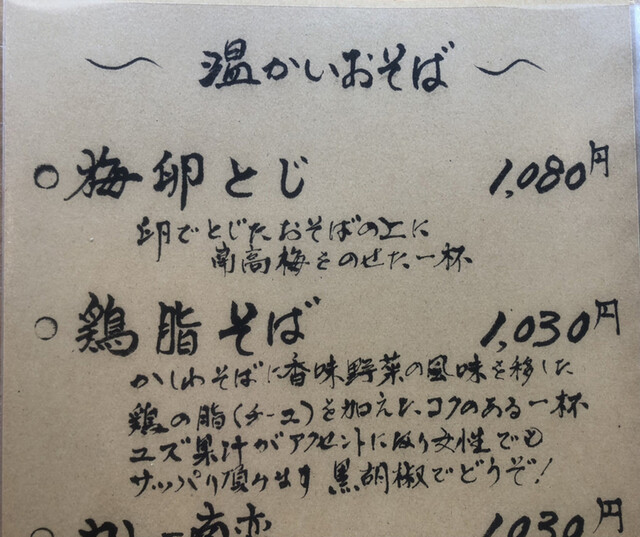 〜 温かいおそば 〜
○ 梅卵とじ 1,080円
卵でとじたおそばの上に
南高梅をのせた一杯
○ 鶏脂そば 1,030円
かしわそばに香味野菜の風味を移した
鶏の脂(チーユ)を加えたコクのある一杯
ユズ果汁がアクセントになり女性でも
サッパリ頂けます 黒胡椒でどうぞ!
○ カレー南蛮 1,030円